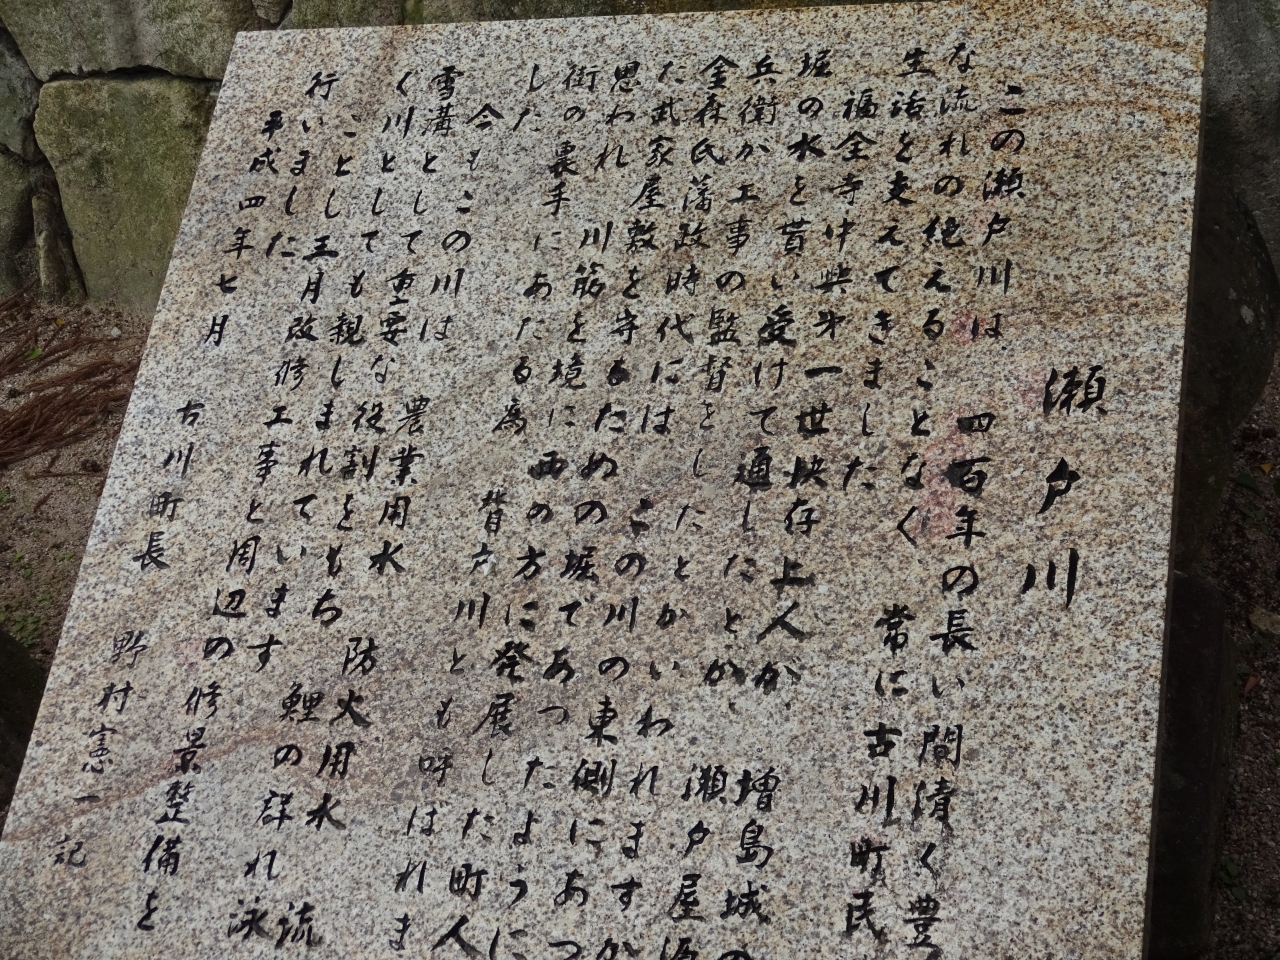 瀬戸川
この瀬戸川は 四百年の長い間清く豊
な流れの絶えることなく 常に古川町民
生活を支えてきました
福全寺中興第一世快存上人が 増島城の
堀の水を貰い受けて通したとか 瀬戸屋源
兵衛が工事の監督をしたとかいわれますが
金森氏藩政時代には この川の東側にあっ
た武家屋敷を守るための堀であったように
思われ 川筋を境に西の方に発展した町人
街の裏手にあたる為 背戸川とも呼ばれま
した
今もこの川は 農業用水 防火用水 流
雪溝として重要な役割をもち 鯉の群れ泳
く川としても親しまれています
ことし三月改修工事と周辺の修景整備を
行いました
平成四年七月
古川町長 野村憲一記